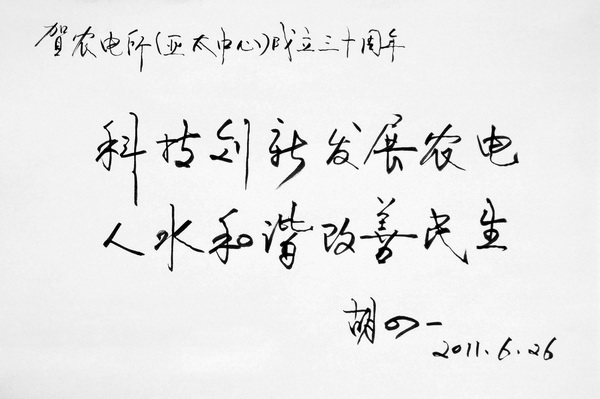 贺农电所(亚太中心)成立三十周年
科技创新发展农电
人水和谐改善民生
胡四一
2011.6.26